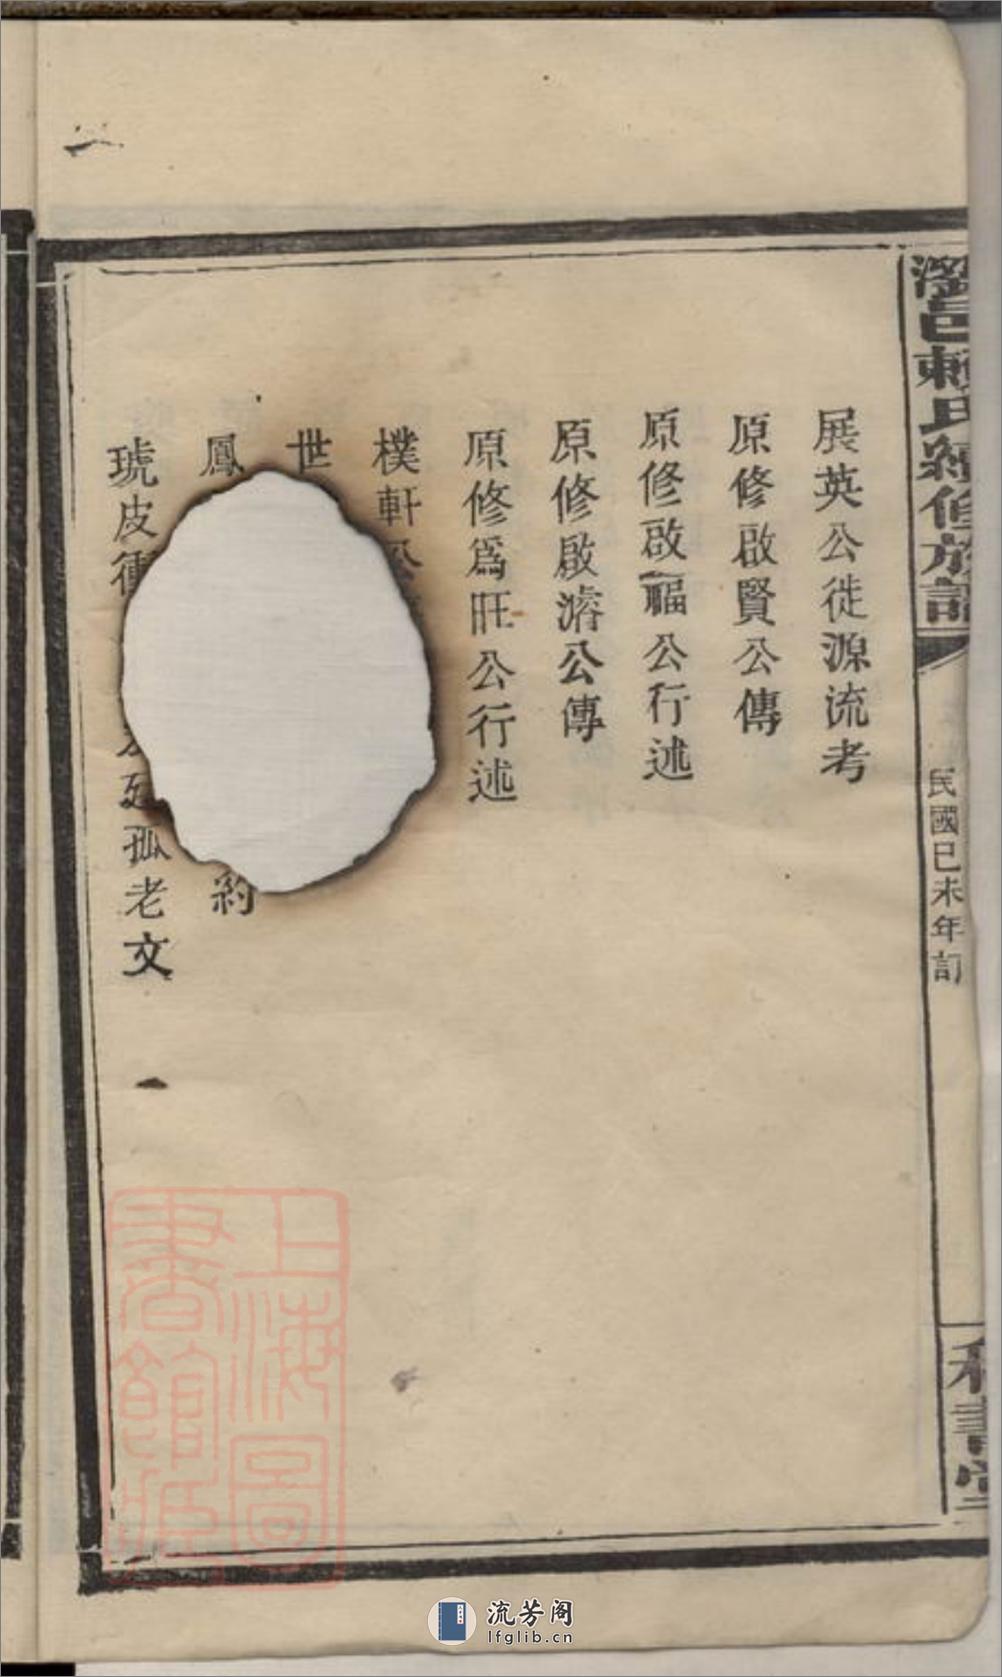 瀏邑賴氏續修族譜
民國已未年訂
書堂
展英公徙源流考
原修啟賢公傳
原修啟福公行述
原修啟濬公傳
原修爲旺公行述
樸軒公
世
鳳
約
琥皮衝
孤老文
一
上海圖書館藏
流芳阁
lfglib.cn